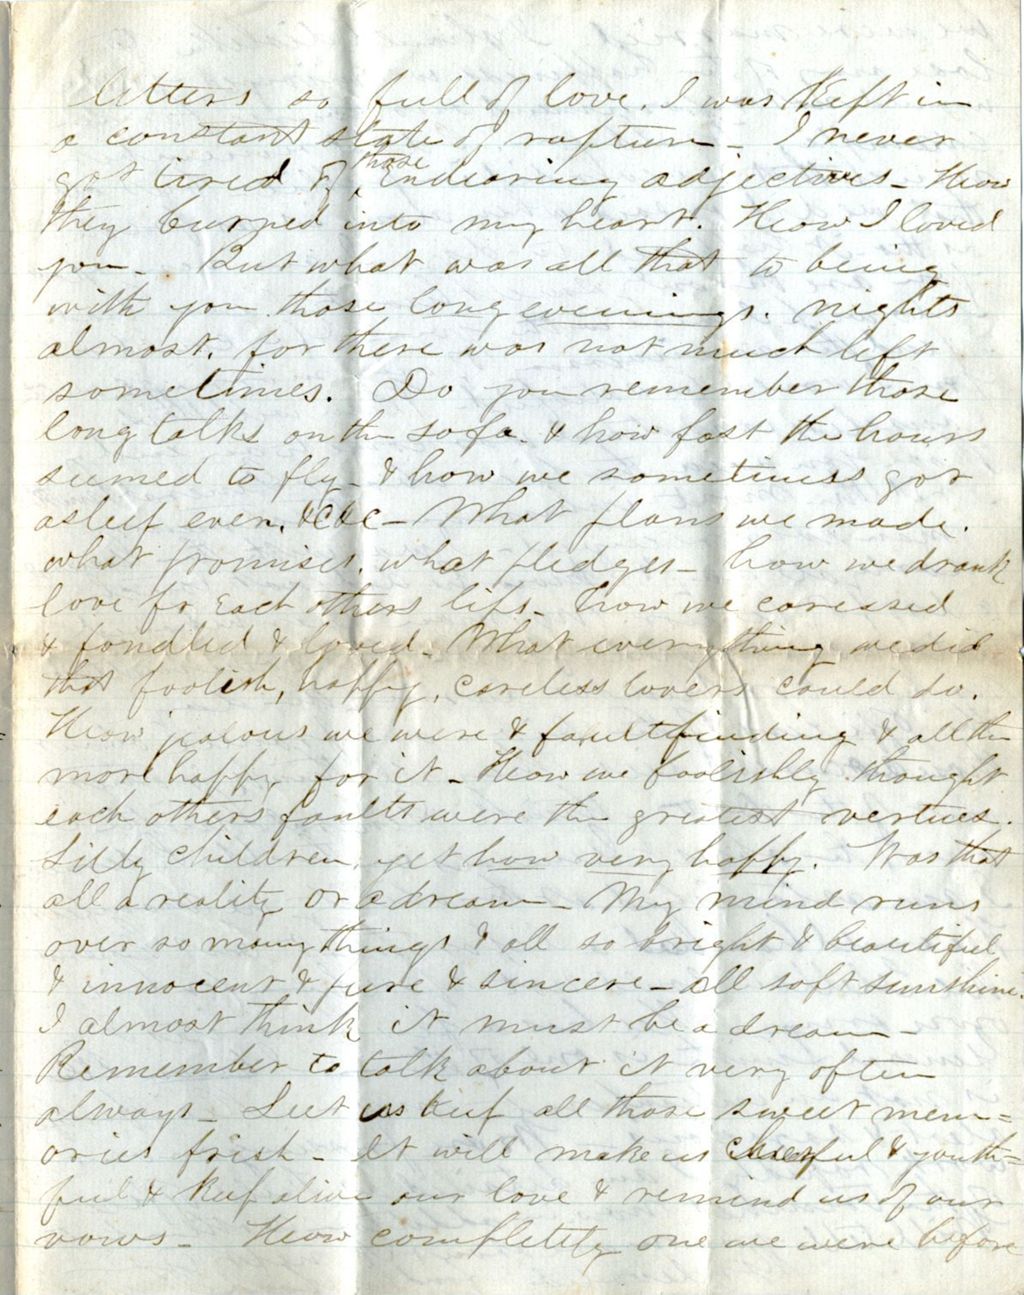 letters so full of love. I was kept in
a constant state of rapture - I never
got tired of those endearing adjectives - How
they burned into my heart. How I loved
you - But what was all that to being
with you those long evenings. nights
almost. for there was not much left
sometimes. Do you remember those
long talks on the sofa. & how fast the hours
seemed to fly - & how we sometimes got
asleep even. &c &c - What plans we made.
what promises. what pledges - how we drank
love fr each others lips - how we caressed
& fondled & loved - What everything we did
that foolish, happy, careless lovers could do.
How jealous we were & faultfinding & all the
more happy for it - How we foolishly thought
each others faults were the greatest vertues.
Silly children, yet how very happy. Was that
all a reality or a dream - My mind runs
over so many things & all so bright & beautiful
& innocent & pure & sincere - all soft sunshine.
I almost think it must be a dream -
Remember to talk about it very often
always - Let us keep all those sweet mem=
ories fresh - It will make us cheerful & youth=
ful & keep alive our love & remind us of our
vows - How completely one we were before